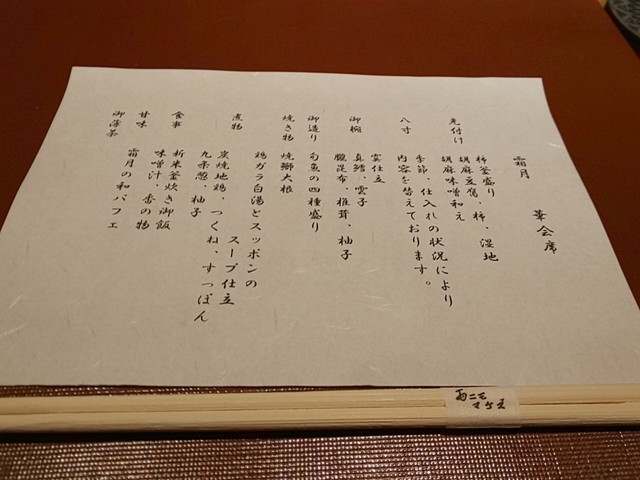 霜月　華会席
先付け
柿釜盛り
胡麻豆腐、柿、湿地
胡麻味噌和え
八寸
季節、仕入れの状況により
内容を替えております。
御椀
雲仕立
真鱈、雲子
朧昆布、椎茸、柚子
御造り　旬魚の四種盛り
焼き物　焼鰤大根
煮物
鶏ガラ白湯とスッポンの
スープ仕立
炭焼地鶏、つくね、すっぽん
九条葱、柚子
食事　新米釜炊き御飯
味噌汁、香の物
甘味　霜月の和パフェ
御薄茶
雨ニモ
マケズ